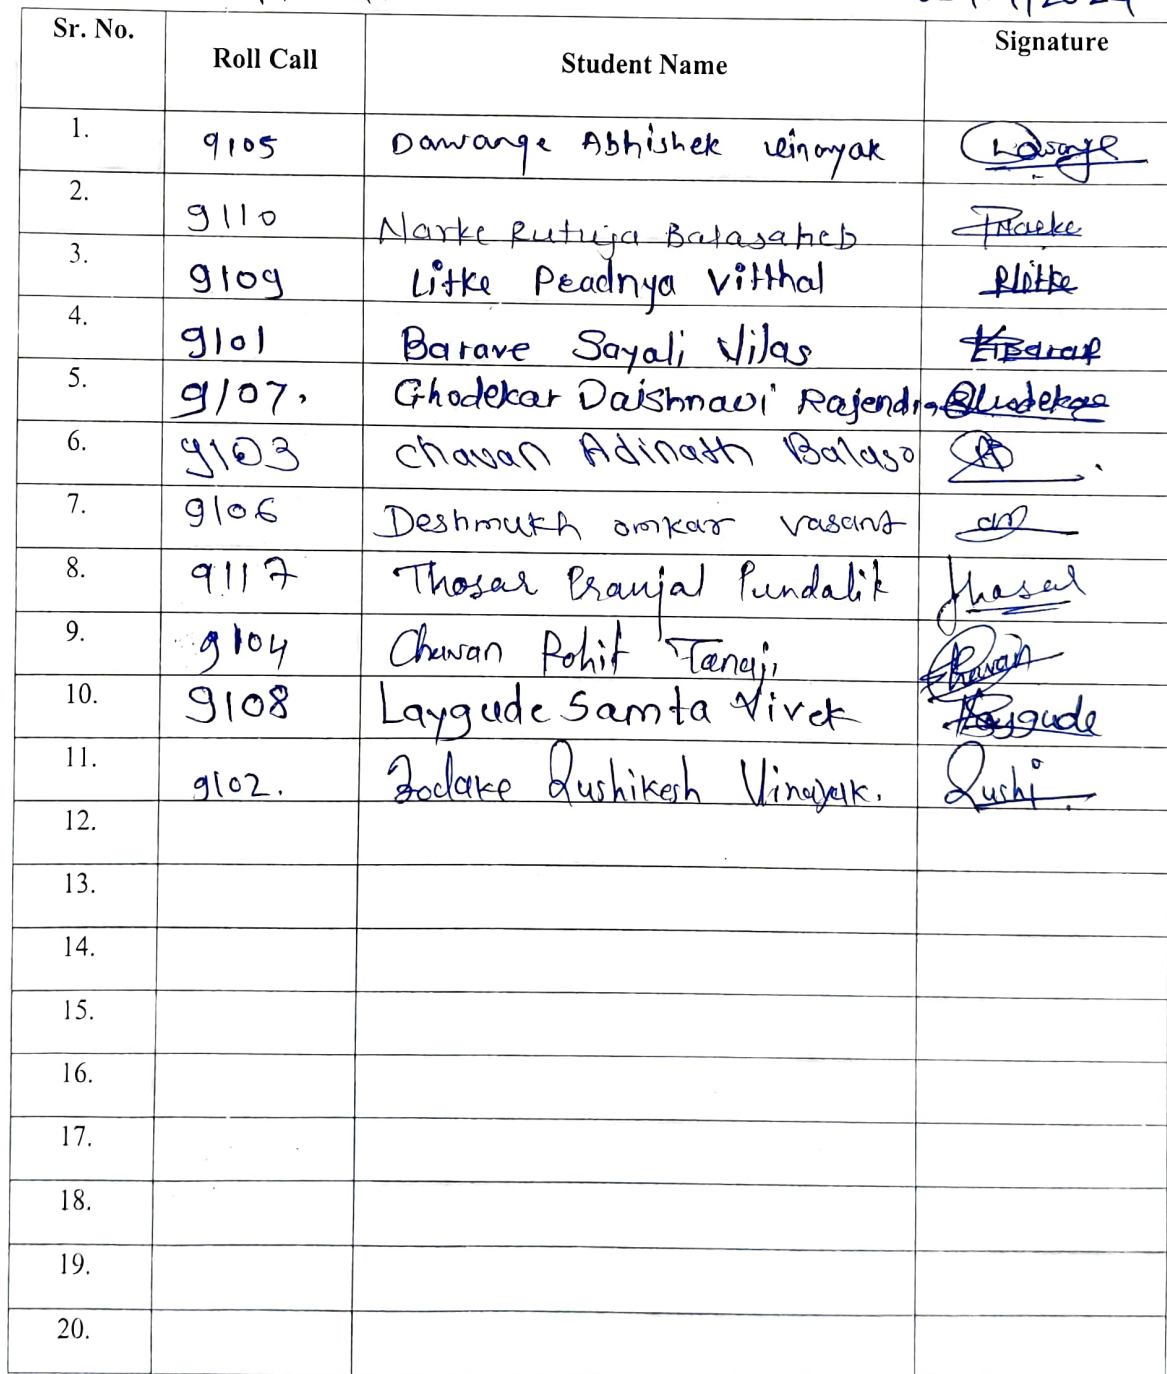 Sr. No. Roll Call Student Name Signature
1. 9105 Dawange Abhishek Vinayak
2. 9110 Narke Rutuja Balasaheb Narke
3. 9109 Litke Pradnya Vitthal PLitke
4. 9101 Barave Sayali Vilas
5. 9107. Ghodekar Vaishnavi Rajendra Ghodekar
6. 9103 Chavan Adinath Balaso
7. 9106 Deshmukh omkar vasant
8. 9117 Thosar Pranjal Pundalik Thosar
9. 9104 Chavan Rohit Tanaji Chavan
10. 9108 Laygude Samta Vivek Laygude
11. 9102. Bodake Rushikesh Vinayak. Rushi
12.
13.
14.
15.
16.
17.
18.
19.
20.